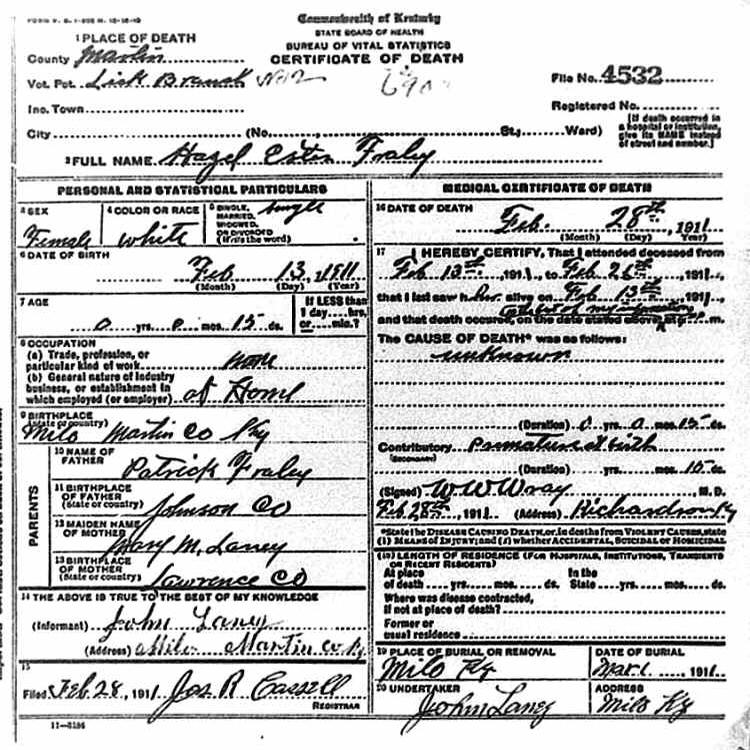 FORM V. S. 1-
Commonwealth of Kentucky
STATE BOARD OF HEALTH
BUREAU OF VITAL STATISTICS
CERTIFICATE OF DEATH
1 PLACE OF DEATH
County Martin
Vot. Pct. Lick Branch No 2
File No. 4532
Inc. Town
Registered No.
City (No. , St.; Ward)
[If death occurred in a hospital or institution, give its NAME instead of street and number.]
2 FULL NAME Hazel Ester Fraley
PERSONAL AND STATISTICAL PARTICULARS
3 SEX
Female
4 COLOR OR RACE
white
5 SINGLE, MARRIED, WIDOWED OR DIVORCED (Write the word)
Single
6 DATE OF BIRTH
Feb 13, 1911
(Month) (Day) (Year)
7 AGE
0 yrs. 0 mos. 15 ds.
If LESS than 1 day....hrs. or....min.?
8 OCCUPATION
(a) Trade, profession, or
particular kind of work none
(b) General nature of industry
business, or establishment in
which employed (or employer) at Home
9 BIRTHPLACE
(State or country)
Milo Martin Co Ky
PARENTS
10 NAME OF FATHER
Patrick Fraley
11 BIRTHPLACE OF FATHER
(State or country)
Johnson Co
12 MAIDEN NAME OF MOTHER
Mary M. Laney
13 BIRTHPLACE OF MOTHER
(State or country)
Lawrence Co
14 THE ABOVE IS TRUE TO THE BEST OF MY KNOWLEDGE
(Informant) John Laney
(Address) Milo Martin Co Ky
15
Filed Feb 28, 1911 Jas R Cassell
REGISTRAR
11-3186
MEDICAL CERTIFICATE OF DEATH
16 DATE OF DEATH
Feb. 28th, 1911
(Month) (Day) (Year)
17 I HEREBY CERTIFY, That I attended deceased from
Feb 13th, 1911, to Feb 26th, 1911,
that I last saw her alive on Feb 13th, 1911,
and that death occurred, on the date stated above, at m.
The CAUSE OF DEATH* was as follows:
unknown
(Duration) 0 yrs. 0 mos. 15 ds.
Contributory Premature at birth
(SECONDARY)
(Duration) yrs. mos. 15 ds.
(Signed) W W Wray, M.D.
Feb 28th, 1911 (Address) Richardson Ky
*State the DISEASE CAUSING DEATH, or, in deaths from VIOLENT CAUSES, state
(1) MEANS OF INJURY; and (2) whether ACCIDENTAL, SUICIDAL or HOMICIDAL
(18) LENGTH OF RESIDENCE (FOR HOSPITALS, INSTITUTIONS, TRANSIENTS OR RECENT RESIDENTS)
At place of death yrs. mos. ds. In the State yrs. mos. ds.
Where was disease contracted,
if not at place of death?
Former or
usual residence
19 PLACE OF BURIAL OR REMOVAL
Milo Ky
DATE OF BURIAL
Mar 1, 1911
20 UNDERTAKER
John Laney
ADDRESS
Milo Ky